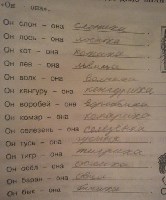 Он слон – она слониха
Он лось – она лосиха
Он кот – она кошка
Он лев – она львица
Он волк – она волчица
Он кенгуру – она кенгуриха
Он воробей – она воробьиха
Он комар – она комариха
Он селезень – она селезниха
Он гусь – она гусыня
Он тигр – она тигрица
Он осёл – она ослиха
Он баран – она овца
Он бык – она